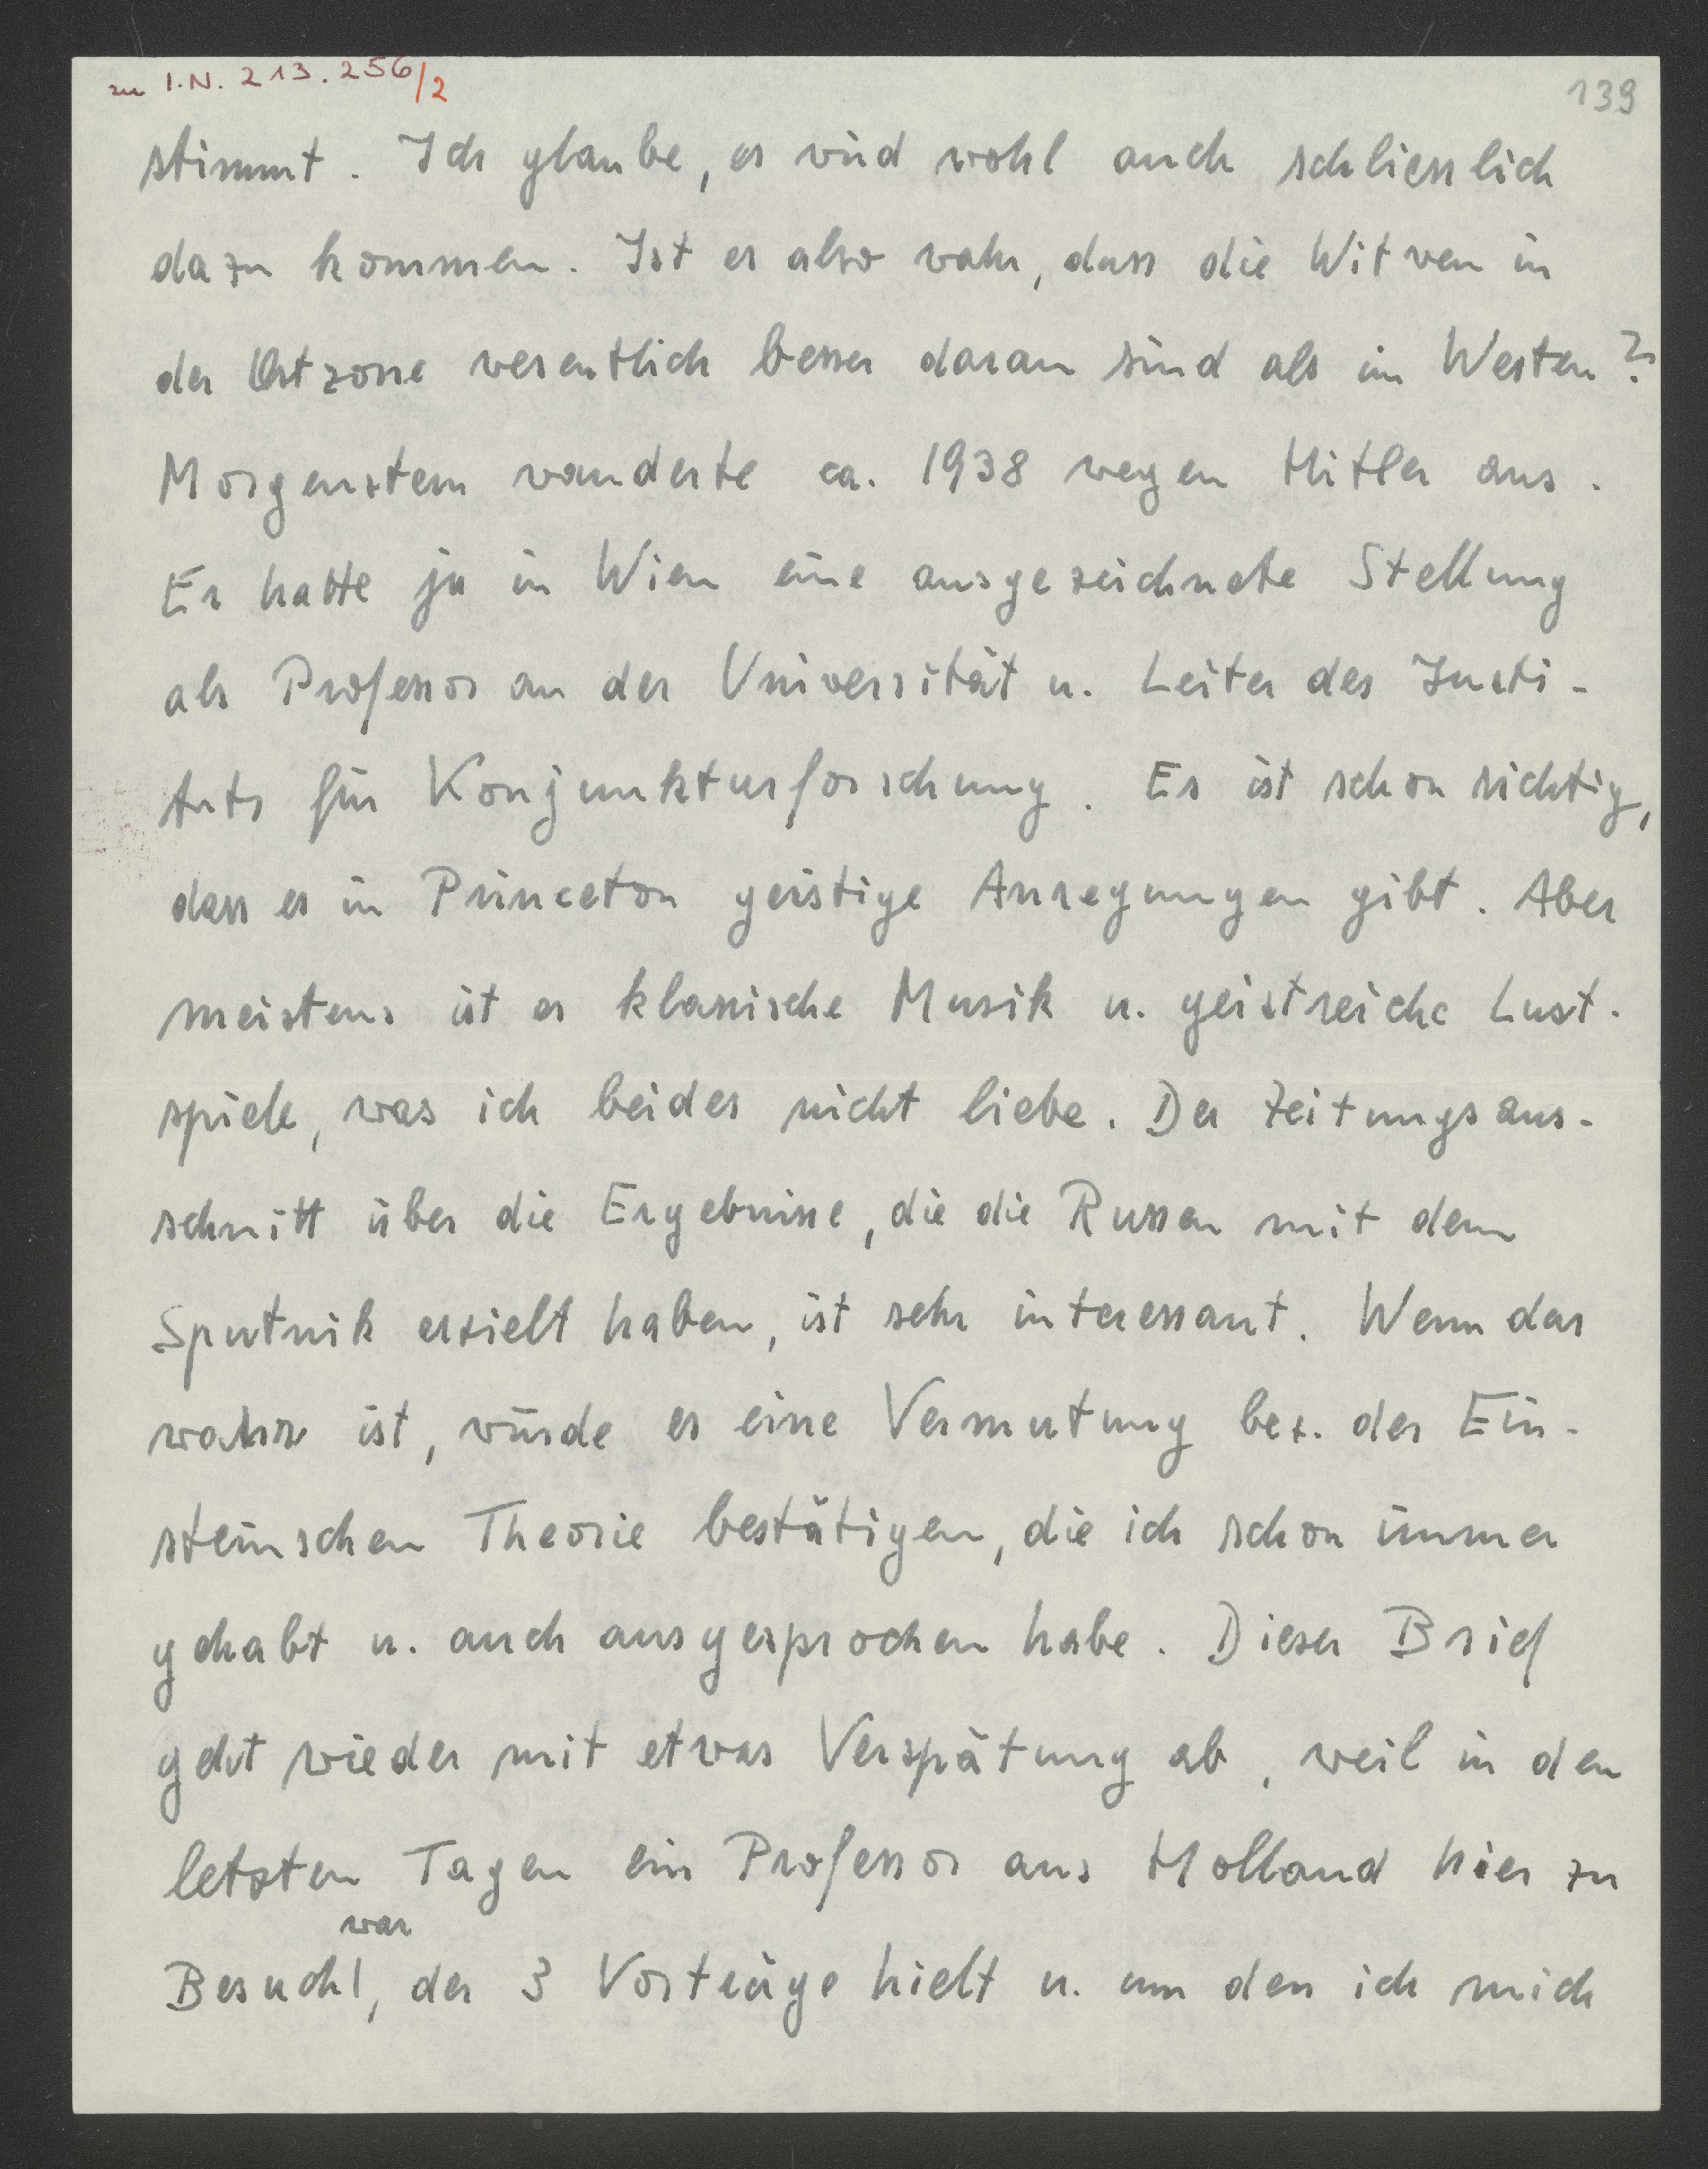 zu I.N. 213.256/2
139
stimmt. Ich glaube, es wird wohl auch schliesslich
dazu kommen. Ist es also wahr, dass die Witwen in
der Ostzone wesentlich besser daran sind als im Westen?
Morgenstern wanderte ca. 1938 wegen Hitler aus.
Er hatte ja in Wien eine ausgezeichnete Stellung
als Professor an der Universität u. Leiter des Insti-
tuts für Konjunkturforschung. Es ist schon richtig,
dass es in Princeton geistige Anregungen gibt. Aber
meistens ist es klassische Musik u. geistreiche Lust-
spiele, was ich beides nicht liebe. Der Zeitungsaus-
schnitt über die Ergebnisse, die die Russen mit dem
Sputnik erzielt haben, ist sehr interessant. Wenn das
wahr ist, würde es eine Vermutung bez. der Ein-
steinschen Theorie bestätigen, die ich schon immer
gehabt u. auch ausgesprochen habe. Dieser Brief
geht wieder mit etwas Verspätung ab, weil in den
letzten Tagen ein Professor aus Holland hier zu
war
Besuch, der 3 Vorträge hielt u. um den ich mich